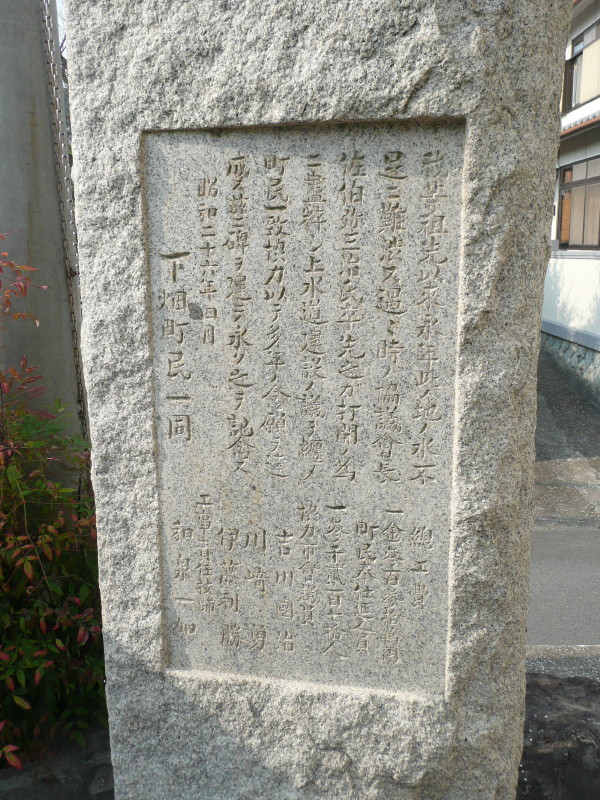 我等祖先以來永年此ノ地ノ水不
足ニ難渋ス過ル時ノ協議會長
佐伯弥三治氏卒先之ガ打開ノ為
ニ盡粹シ上水道建設ノ議ヲ纏メ
町民一致協力以テ多年ノ念願ヲ達
成ス茲ニ碑ヲ建テ永ク之ヲ記念ス
昭和二十六年四月
下畑町民一同
總工費
一金壹百
町民奉仕延人員
協力市會議員
吉川國治
川﨑勇
伊藤利勝
工事責任技師
和泉一